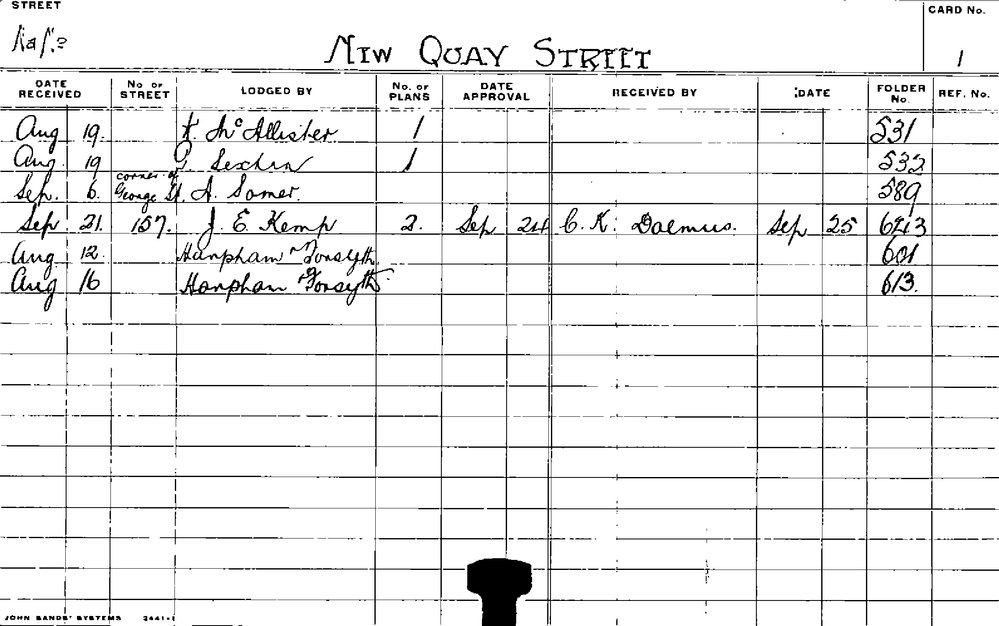 STREET
CARD No.
NEW QUAY STREET
1
DATE RECEIVED No OF STREET LODGED BY No. OF PLANS DATE APPROVAL RECEIVED BY DATE FOLDER No. REF. No.
Aug 19. McAllister 1 531
Aug. 19 1 532
corner of
Sep. 6. George St. A. Somer. 589
Sep 21. 157. J. E. Kemp 2. Sep 24 C. K. Daemus. Sep 25 643
Aug 12. Hanpham Forsyth 601
Aug 16 Hanpham Forsyth. 613.
JOHN SANDS' SYSTEMS 2441-1